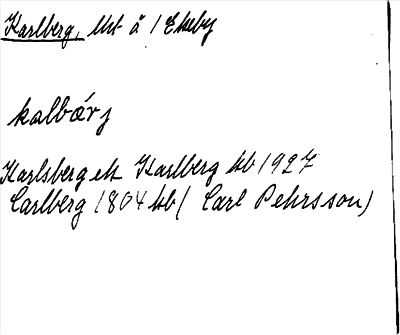 Karlberg, lht å 1 Ekeby
kalbærj
Karlsberg el. Karlberg hb 1927
Carlberg 1804 hb (Carl Pehrsson)